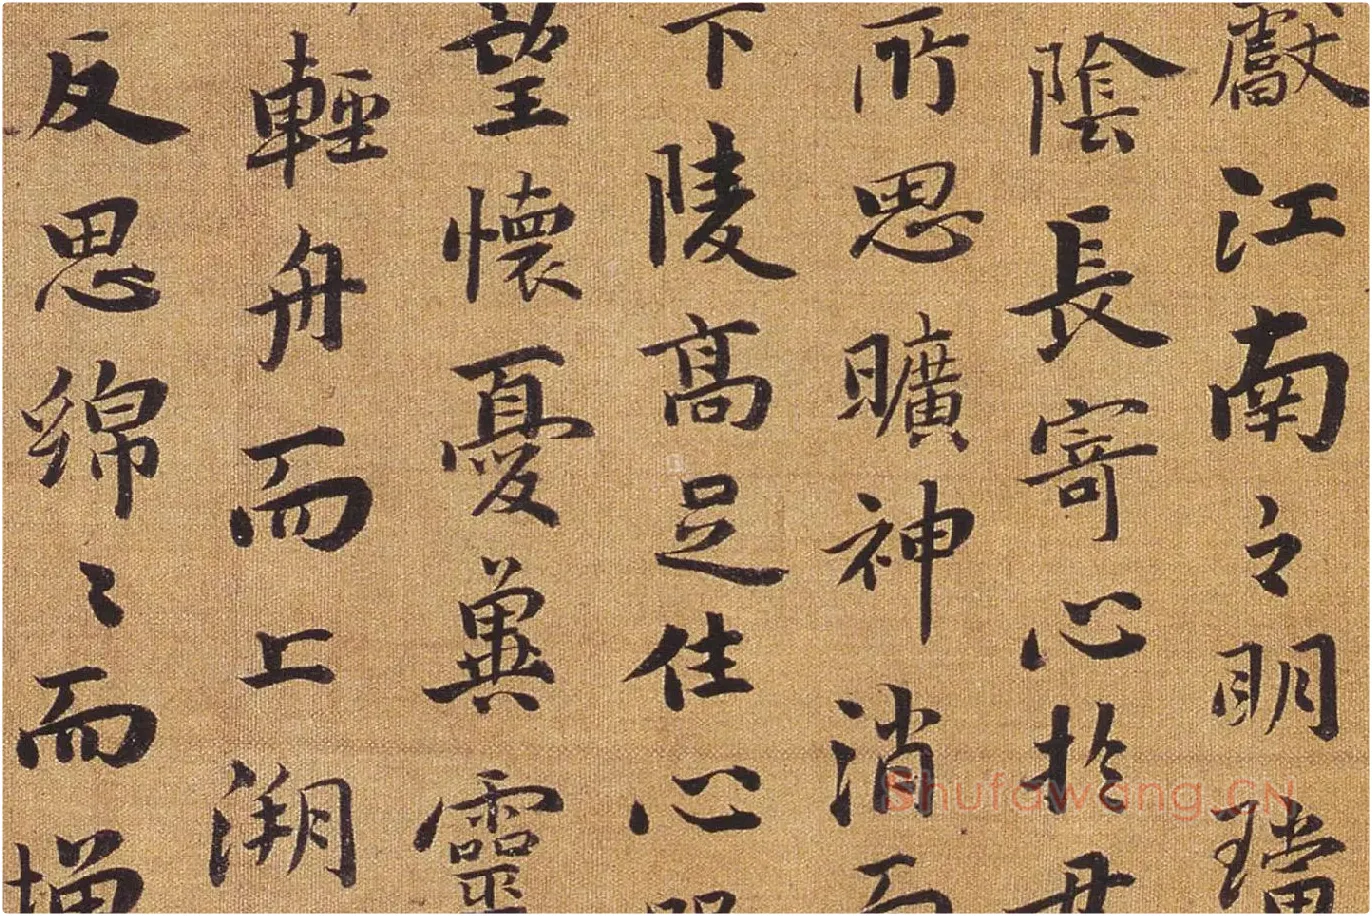 獻江南之明璫
陰長寄心於君
所思曠神消而
下陵高足住心
望懷憂冀靈
輕舟而上溯
反思綿〻而增
Shufawang.CN